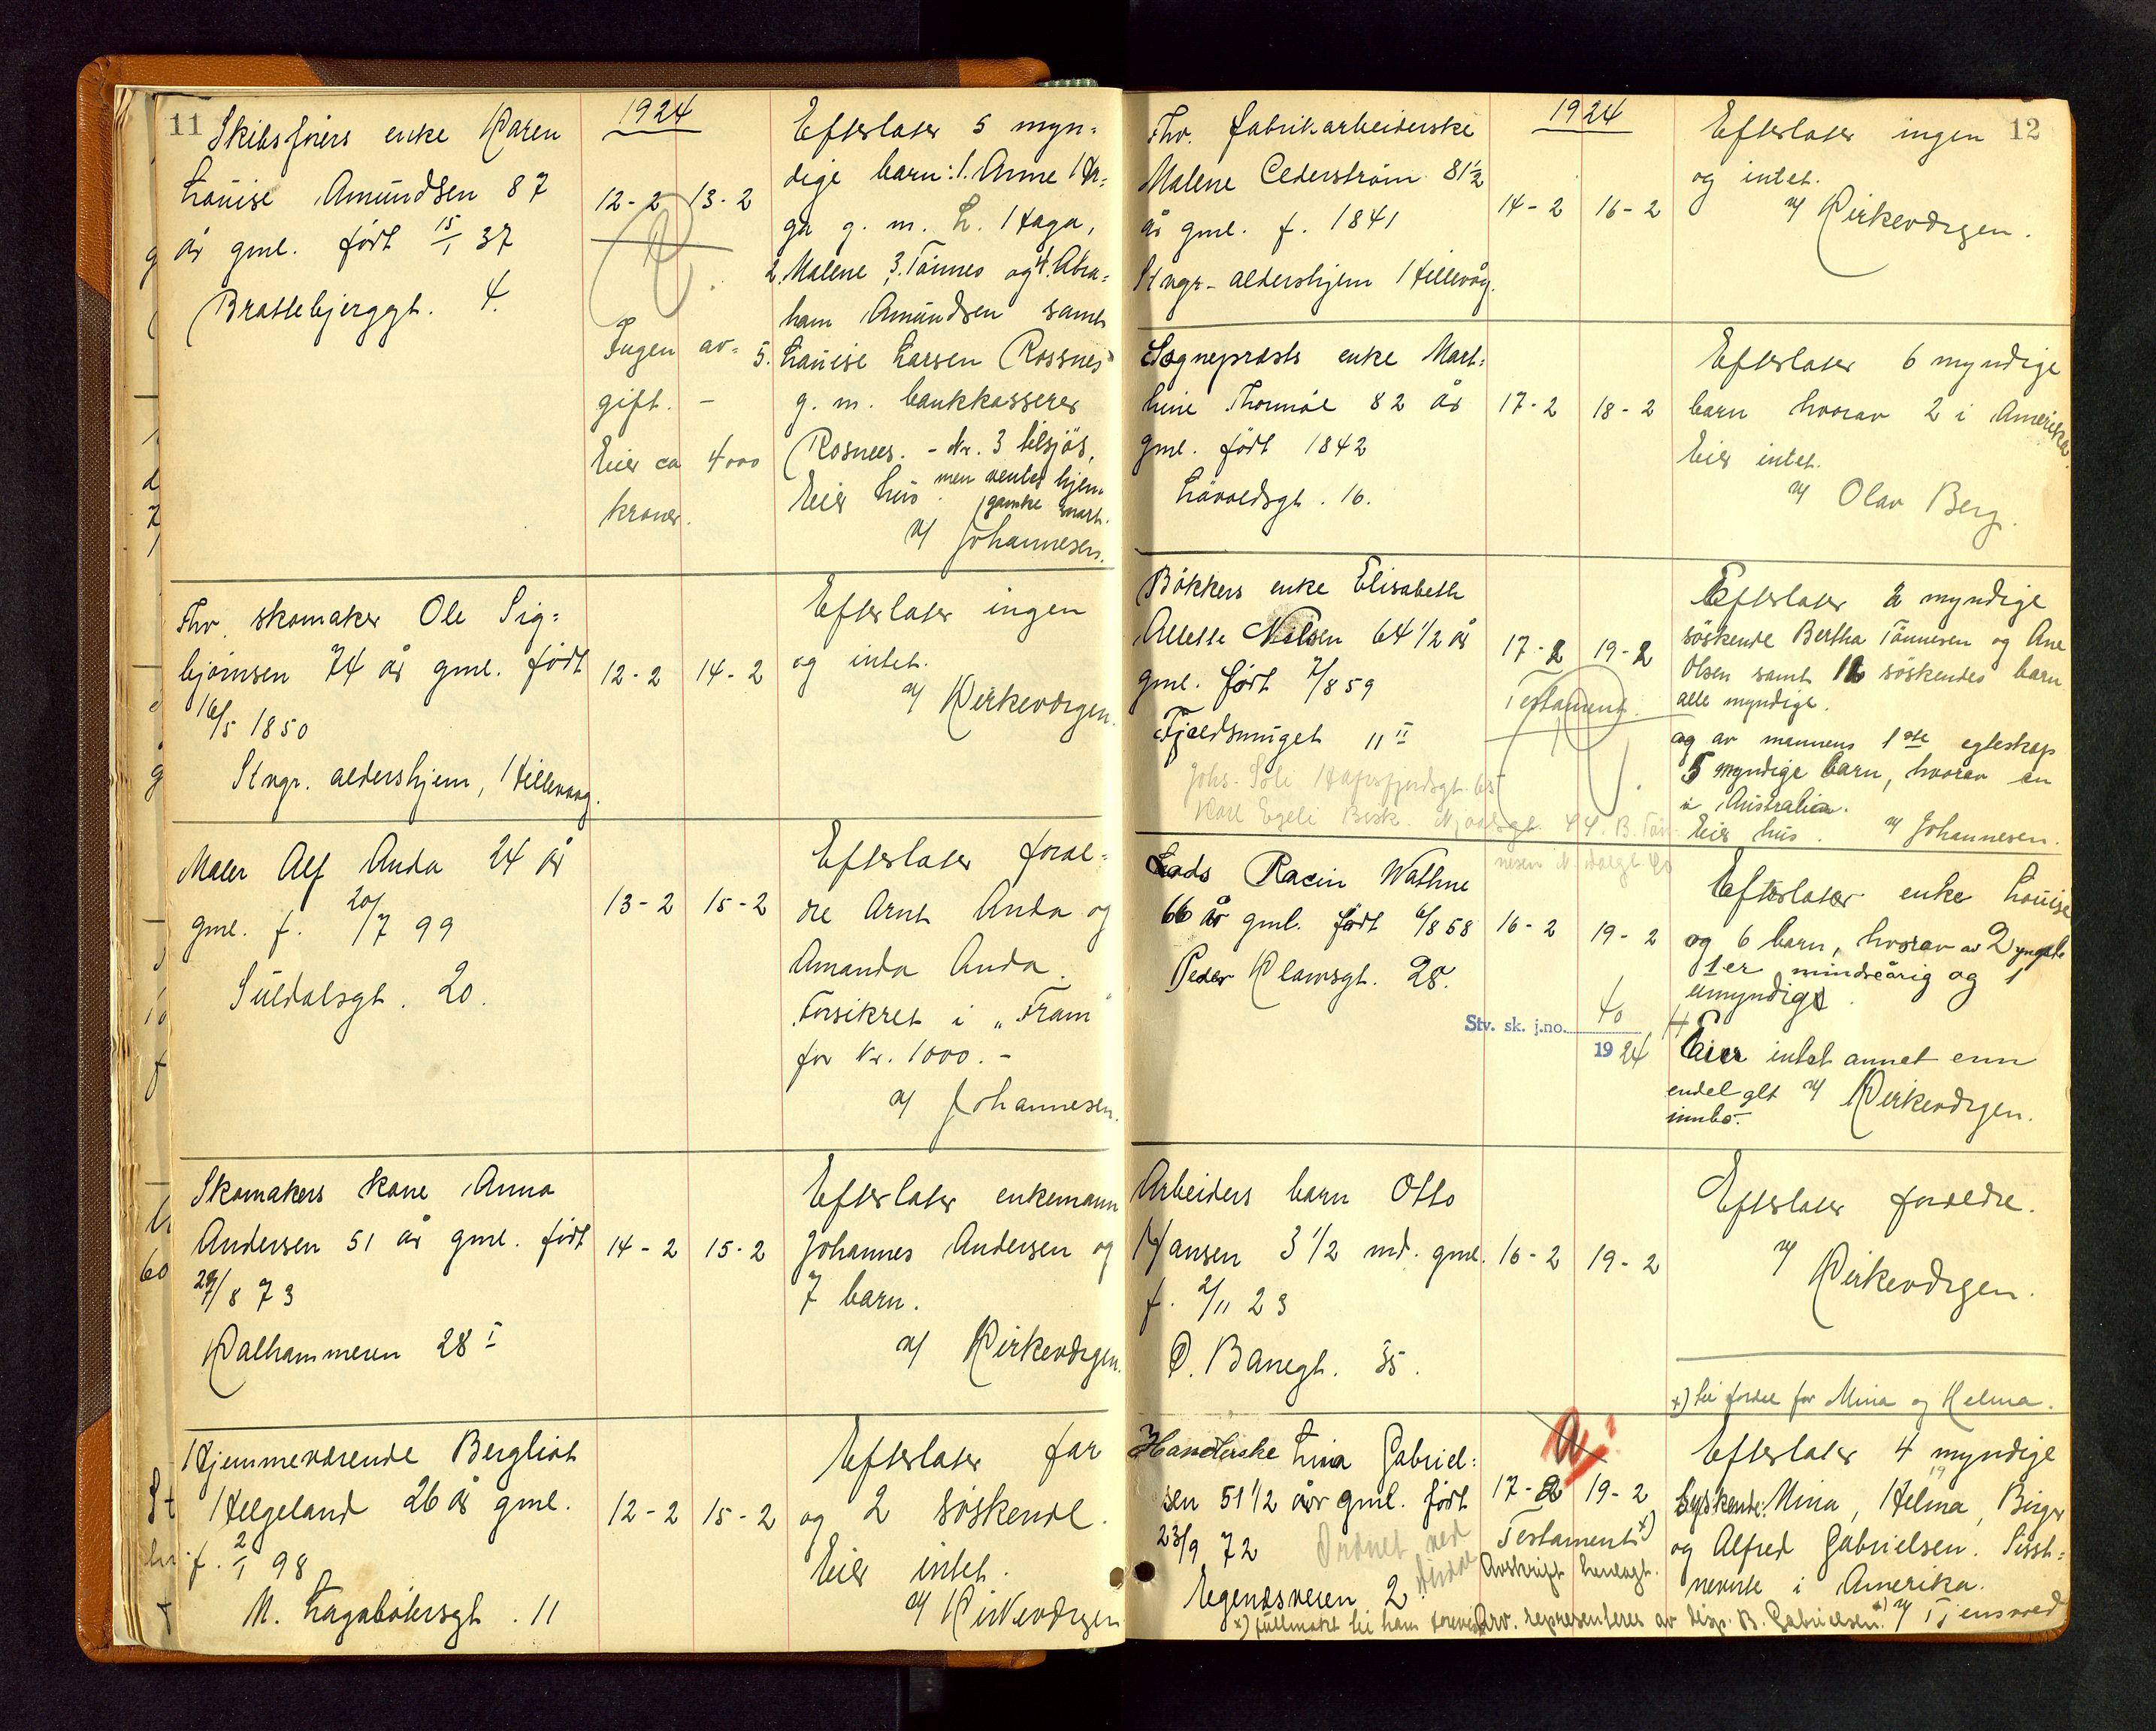 11
1924
Skibsförers enke Karen
Louise Amundsen 87
år gml. født 15/1 37
Brattebjerggt. 4.
12-2 13-2
Ingen av=
gift. -
Eier ca 4000
kroner.
Efterlater 5 myn=
dige barn: 1. Anne Ha=
ga g. m. L. Haga,
2. Malene 3. Tönnes og 4. Abra=
ham Amundsen samt
5. Louise Larsen Rossnes
g. m. bankkasserer
Rosnes. - Nr. 3 tilsjös,
men ventes hjem
Eier hus. ganske snart.
v/ Johannesen.
Fhv. skomaker Ole Sig=
björnsen 74 år gml. født
16/5 1850
Stvgr. aldershjem, Hillevaag.
12-2 14-2
Efterlater ingen
og intet.
v/ Kirkevergen.
Maler Alf Anda 24 år
gml. f. 20/7 99
Suldalsgt. 20.
13-2 15-2
Efterlater foræl=
dre Arnt Anda og
Amanda Anda.
Forsikret i „Fram"
for kr. 1000. -
v/ Johannesen.
Skomakers kone Anna
Andersen 51 år gml. født
29/8 73
Kalhammeren 28 I
14-2 15-2
Efterlater enkemann
Johannes Andersen og
7 barn.
v/ Kirkevergen.
Hjemmeværende Bergliot
Helgeland 26 år gml.
f. 2/1 98
M. Lagabötersgt. 11
12-2 15-2
Efterlater far
og 2 söskende.
Eier intet.
v/ Kirkevergen
12
1924
Fhv. fabrikarbeiderske
Malene Cederström 81 1/2
år gml. f. 1841
Stvgr. aldershjem Hillevåg.
14-2 16-2
Efterlater ingen
og intet.
v/ Kirkevergen.
Sogneprests enke Mart=
hine Thormöe 82 år
gml. født 1842
Lövoldsgt. 16.
17-2 18-2
Efterlater 6 myndige
barn hvorav 2 i Amerika.
Eier intet.
v/ Olav Berg.
Bökkers enke Elisabeth
Alette Nilsen 64 1/2 år
gml. født 7/8 59
Fjeldsmuget 11 II
Johs. Sole Hafrsfjordsgt. 65
Karl Egeli Bisk. Njaalsgt. 44. B. Tön-
17-2 19-2
Testament.
Efterlater 2 myndige
söskende Bertha Tönnesen og Ane
Olsen samt 12 söskendes barn
alle myndige.
og av mannens 1ste egteskap
5 myndige barn, hvorav en
i Australia.
Eier hus. v/ Johannesen.
Lods Racin Wathne
66 år gml. födt 6/8 58
Peder Klowsgt. 28.
16-2 19-2
Stv. sk. j.no. 40
1924
Efterlater enke Louise
og 6 barn, hvorav av 2 yngste
1 er mindreårig og 1
umyndig.
Eier intet annet enn
endel glt innbo. v/ Kirkevergen.
Arbeiders barn Otto
Hansen 3 1/2 md. gml.
f. 2/11 23
Ö. Banegt. 35.
16-2 19-2
Efterlater foreldre.
v/ Kirkevergen.
x) til fordel for Mina og Helma.
Handlerske Lina Gabriel=
sen 51 1/2 år gml. født
23/9 72
Ordnet ved
Egenæsveien 2
17-2 19-2
Testament x)
Avskrift henlagt.
Efterlater 4 myndige
Syskende: Mina, Helma, Birger
og Alfred Gabrielsen. Sisst=
nevnte i Amerika.
x) fullmakt til ham Arv. representeres av disp. B. Gabrielsen. x) v/ Tjensvold